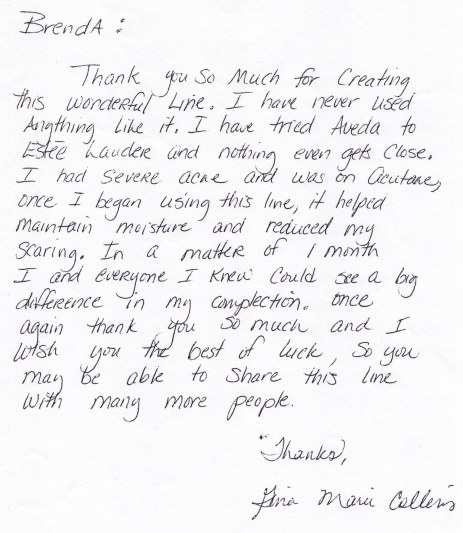 BrendA :
Thank you So Much for Creating
this wonderful Line. I have never used
Anything Like it. I have tried Aveda to
Estée Lauder and nothing even gets Close.
I had Severe acne and was on Acutane,
once I began using this line, it helped
maintain moisture and reduced my
Scaring. In a matter of 1 month
I and everyone I knew Could see a big
difference in my complection. once
again thank you so much and I
Wish you the best of luck, So you
may be able to Share this line
with many more people.
Thanks,
Gina Marie Collins